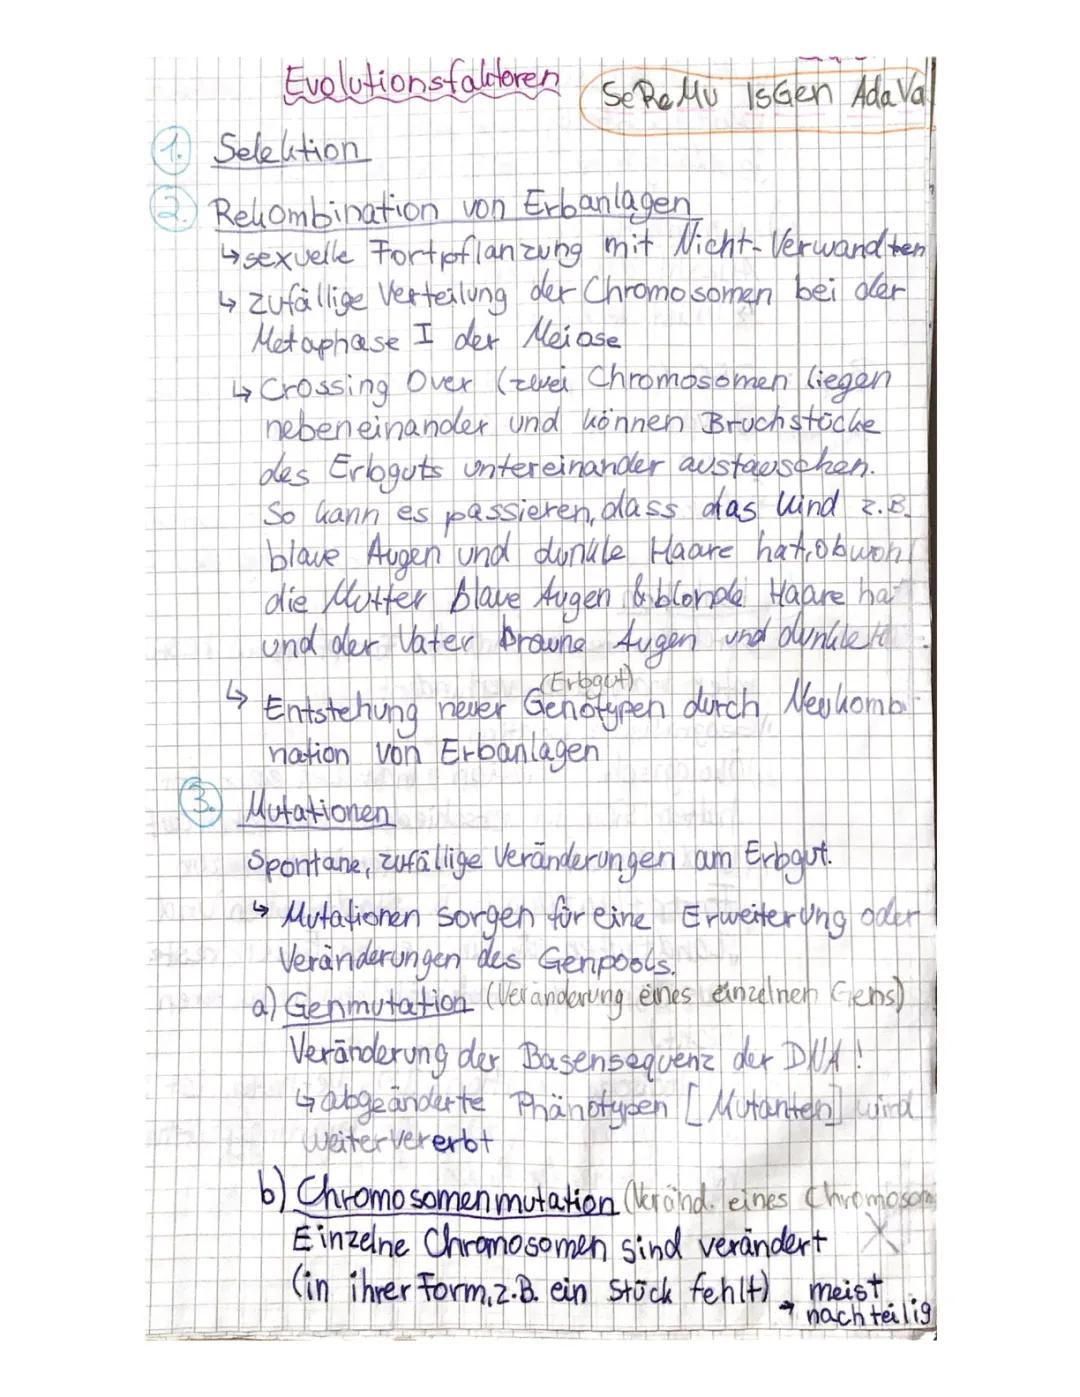 Evolutionsfaktoren
SeReMu IsGen AdaVa
1. Selektion
2. Rekombination von Erbanlagen
↳ sexuelle Fortpflanzung mit Nicht-Verwandten
↳ zufällige Verteilung der Chromosomen bei der
Metaphase I der Meiose
↳ Crossing Over (zwei Chromosomen liegen
nebeneinander und können Bruchstücke
des Erbguts untereinander austauschen.
So kann es passieren, dass das Kind z.B.
blaue Augen und dunkle Haare hat, obwohl
die Mutter blaue Augen & blonde Haare hat
und der Vater braune Augen und dunkle H
(Erbgut)
↳ Entstehung neuer Genotypen durch Neukombi
nation von Erbanlagen
3. Mutationen
Spontane, zufällige Veränderungen am Erbgut.
↳ Mutationen sorgen für eine Erweiterung oder
Veränderungen des Genpools.
a) Genmutation (Veränderung eines einzelnen Gens)
Veränderung der Basensequenz der DNA!
↳ abgeänderte Phänotypen [Mutanten] wird
weitervererbt
b) Chromosomenmutation (Veränd. eines Chromosom
Einzelne Chromosomen sind verändert X
(in ihrer Form, z.B. ein Stück fehlt) → meist
nachteilig